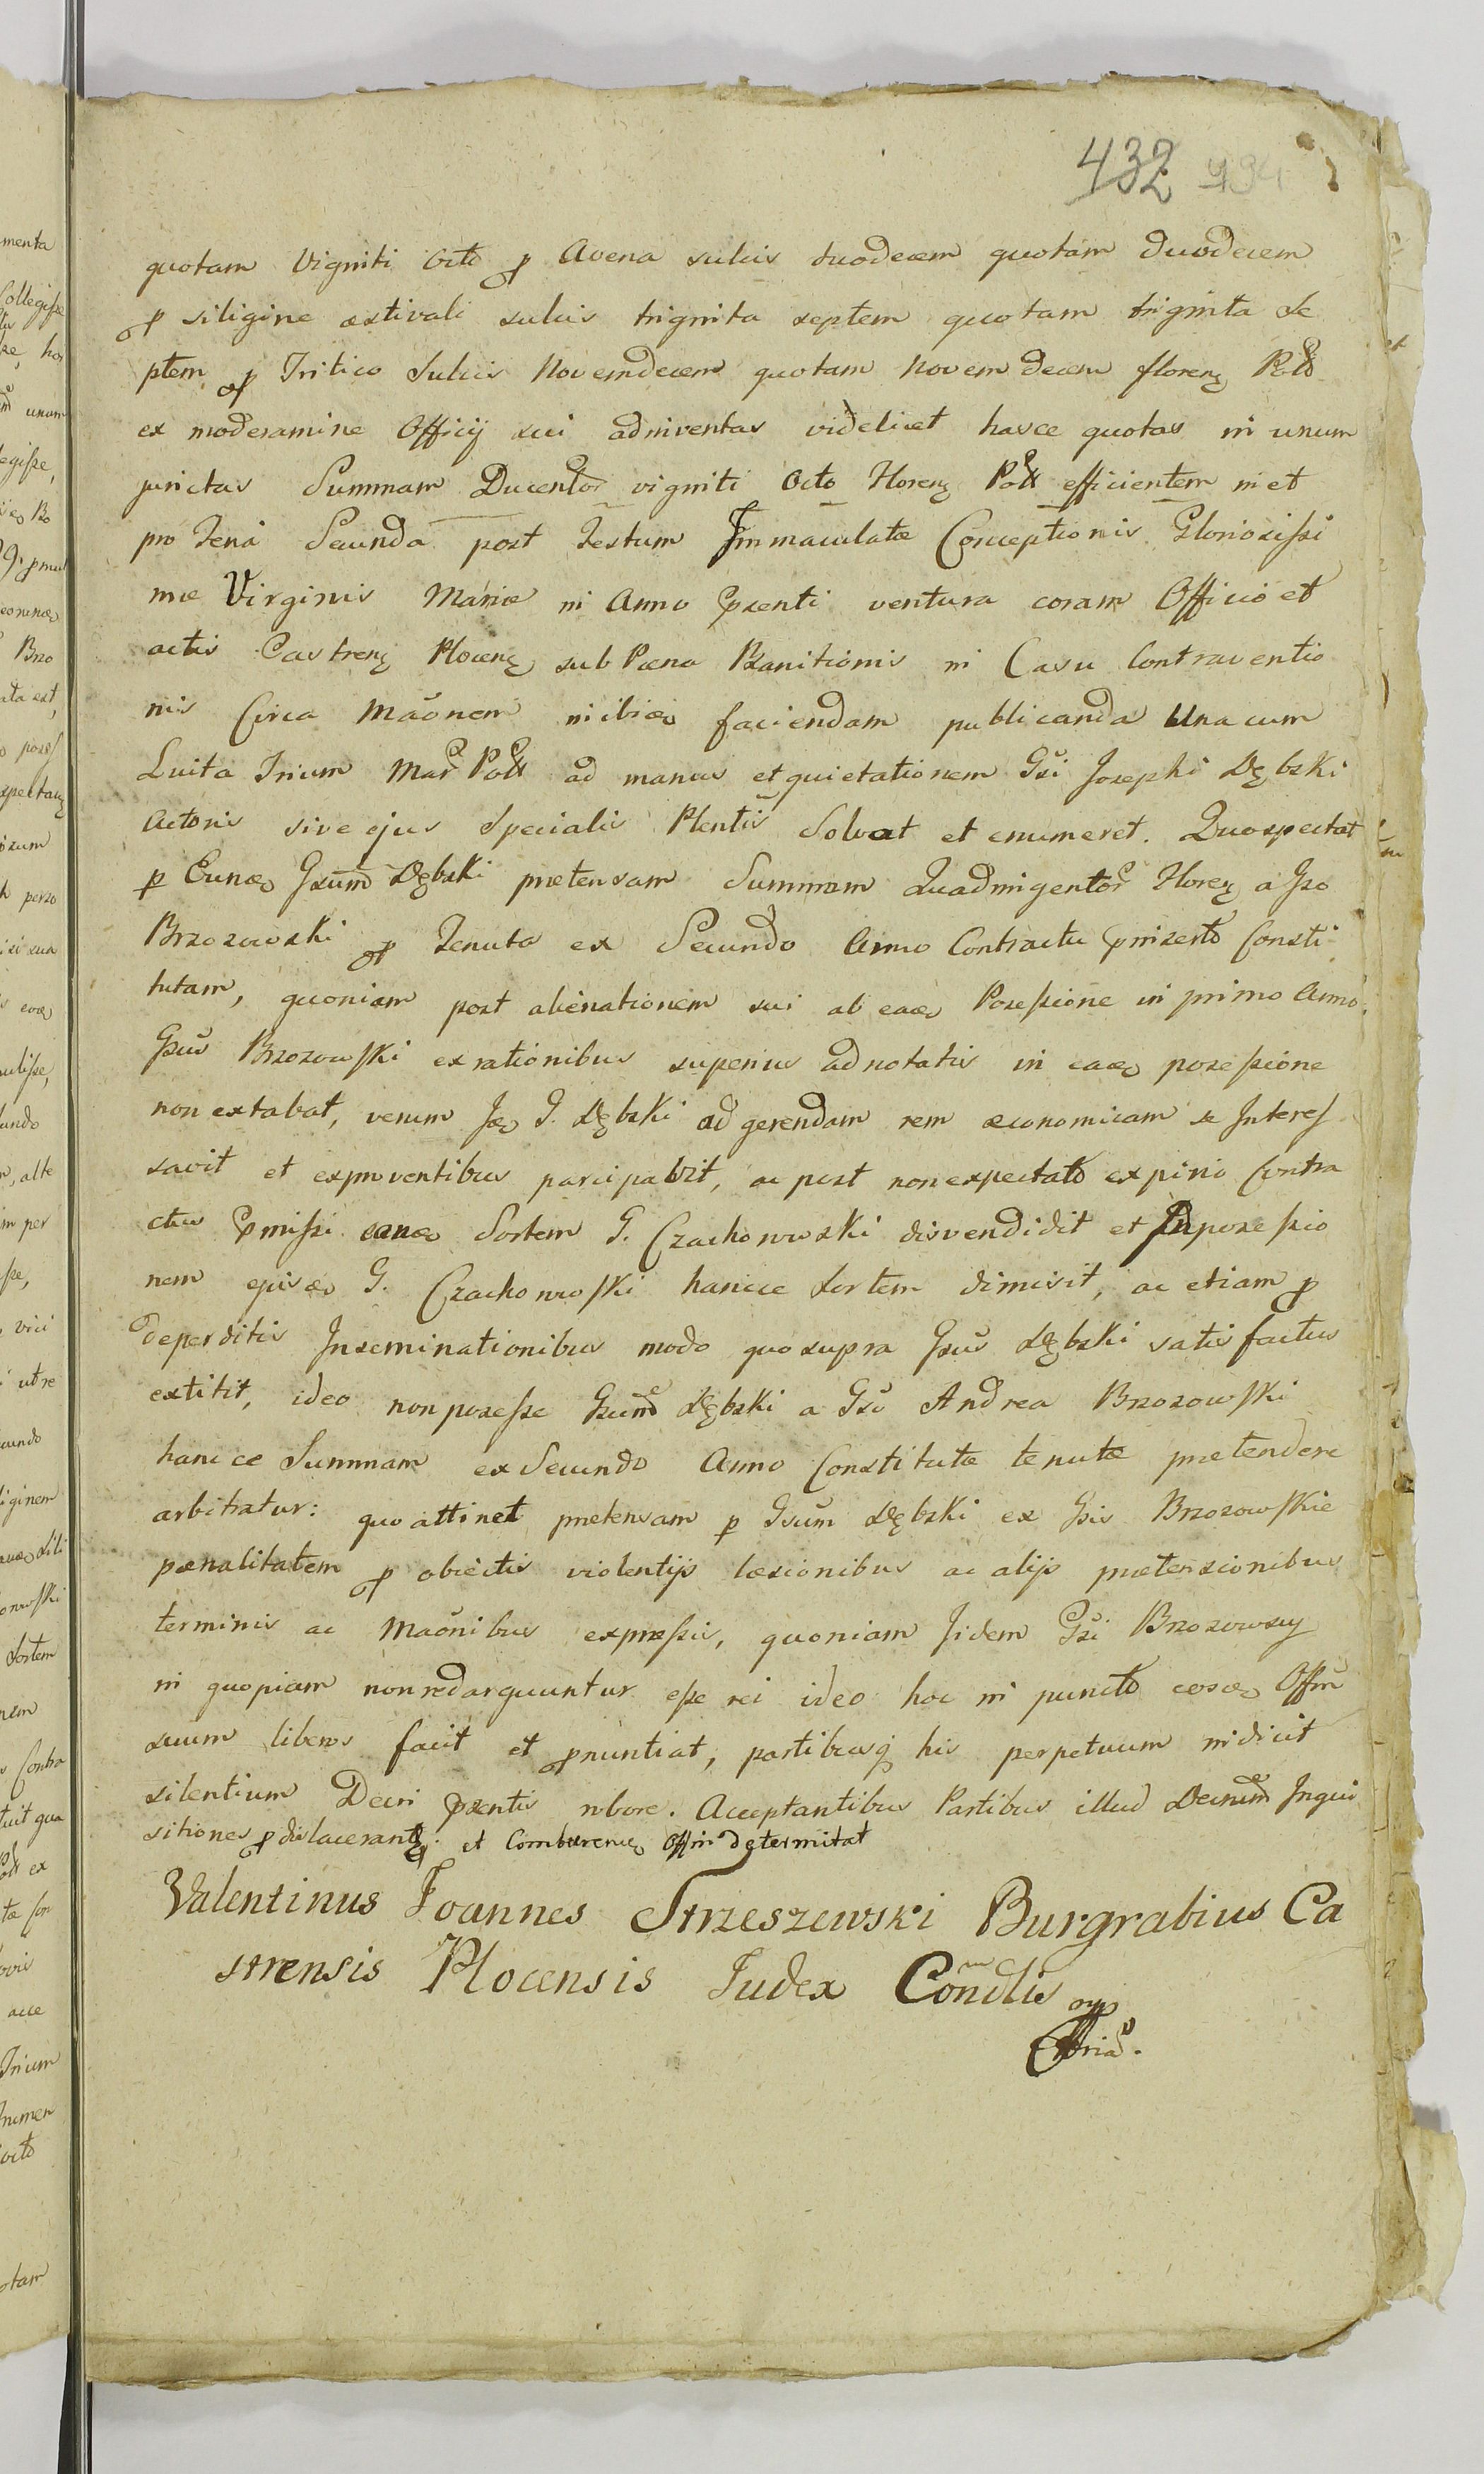 432 434
quotam Viginti Octo p Avena sulcis duodecem quotam duodecem
p siligine æstivali sulcis triginta septem quotam triginta Se
ptem, p Tritico Sulcis Novemdecem quotam Novem decem floren Poll
ex moderamine Officij sui adinventas videlicet hasce quotas in unum
junctas Summam Ducentor viginti Octo Floren Poll efficientem in et
pro Feria Secunda post Festum Immaculatæ Conceptionis Gloriosissi
mæ Virginis Mariæ in Anno Psenti ventura coram Officio et
actis Castren Plocen sub Pæna Banitionis in Casu Contraventio
nis Circa Maõnem inibiq faciendam publicanda Una cum
Luita Trium Mar Poll ad manus et quietationem Gsi Josephi Dębski
Actoris sive ejus Specialis Plentis Solvat et enumeret. Quo spectat
p Eunq Gsum Dębski prætensam Summam Quadringentor Floren a Gso
Brzozowski p Tenuta ex Secundo Anno Contractu Pinserto Consti
tutam, quoniam post alienationem sui ab eaq Possessione in primo Anno
Gsus Brzozowski ex rationibus superius adnotatis in eaq possessione
non extabat, verum Iq G. Dębski ad gerendam rem æconomicam se Interes
savit et exproventibus parcipabit, ac post non expectato expirio Contra
ctus Pmissi eanq Sortem G. Czachowski disvendidit et In possessio
nem ejusq G. Czachowski hancce Sortem dimisit, ac etiam p
deperditis Inseminationibus modo quo supra Gsus Dębski satis factus
extitit, ideo non posesse Gsum Dębski a Gso Andrea Brzozowski
hancce Summam ex Secundo Anno Constitutæ tenutæ prætendere
arbitratur: quo attinet prætensam p Gsum Dębski ex Gsis Brzozowskie
pænalitatem p obiectis violentijs læsionibus ac alijs prætensionibus
terminis ac Maõnibus expressis, quoniam Iidem Gsi Brzozowscy
in quopiam non redarguuntur esse rei ideo hoc in puncto eosq Offm
suum liberos facit et pnuntiat, partibusq his perpetuum indicit
silentium Decri Psentis robore. Acceptantibus Partibus illud Decrum Inqui
sitiones p dislacerant et Comburen Offm determitat
Valentinus Joannes Strzeszewski Burgrabius Ca
strensis Plocensis Judex Condlis mp